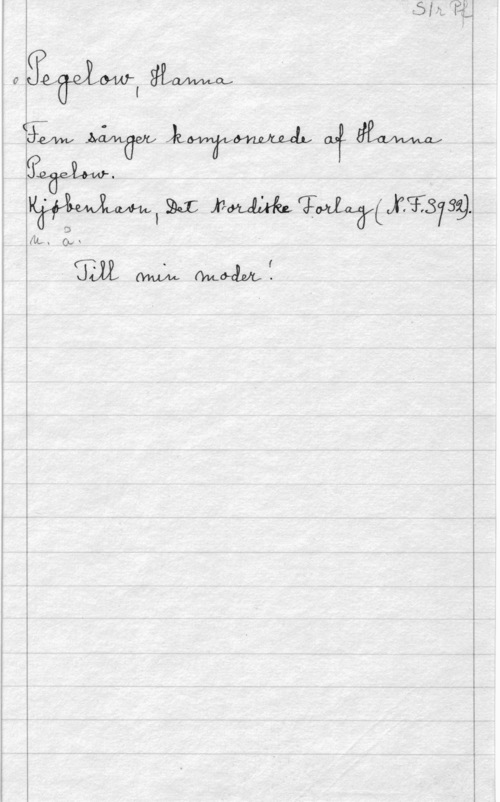 S/r Pf
Pegelow, Hanna
Fem sånger komponerede af Hanna
Pegelow.
Kjøbenhavn, Det Nordiske Forlag (N.F.S932).
u. å.
Till min moder!